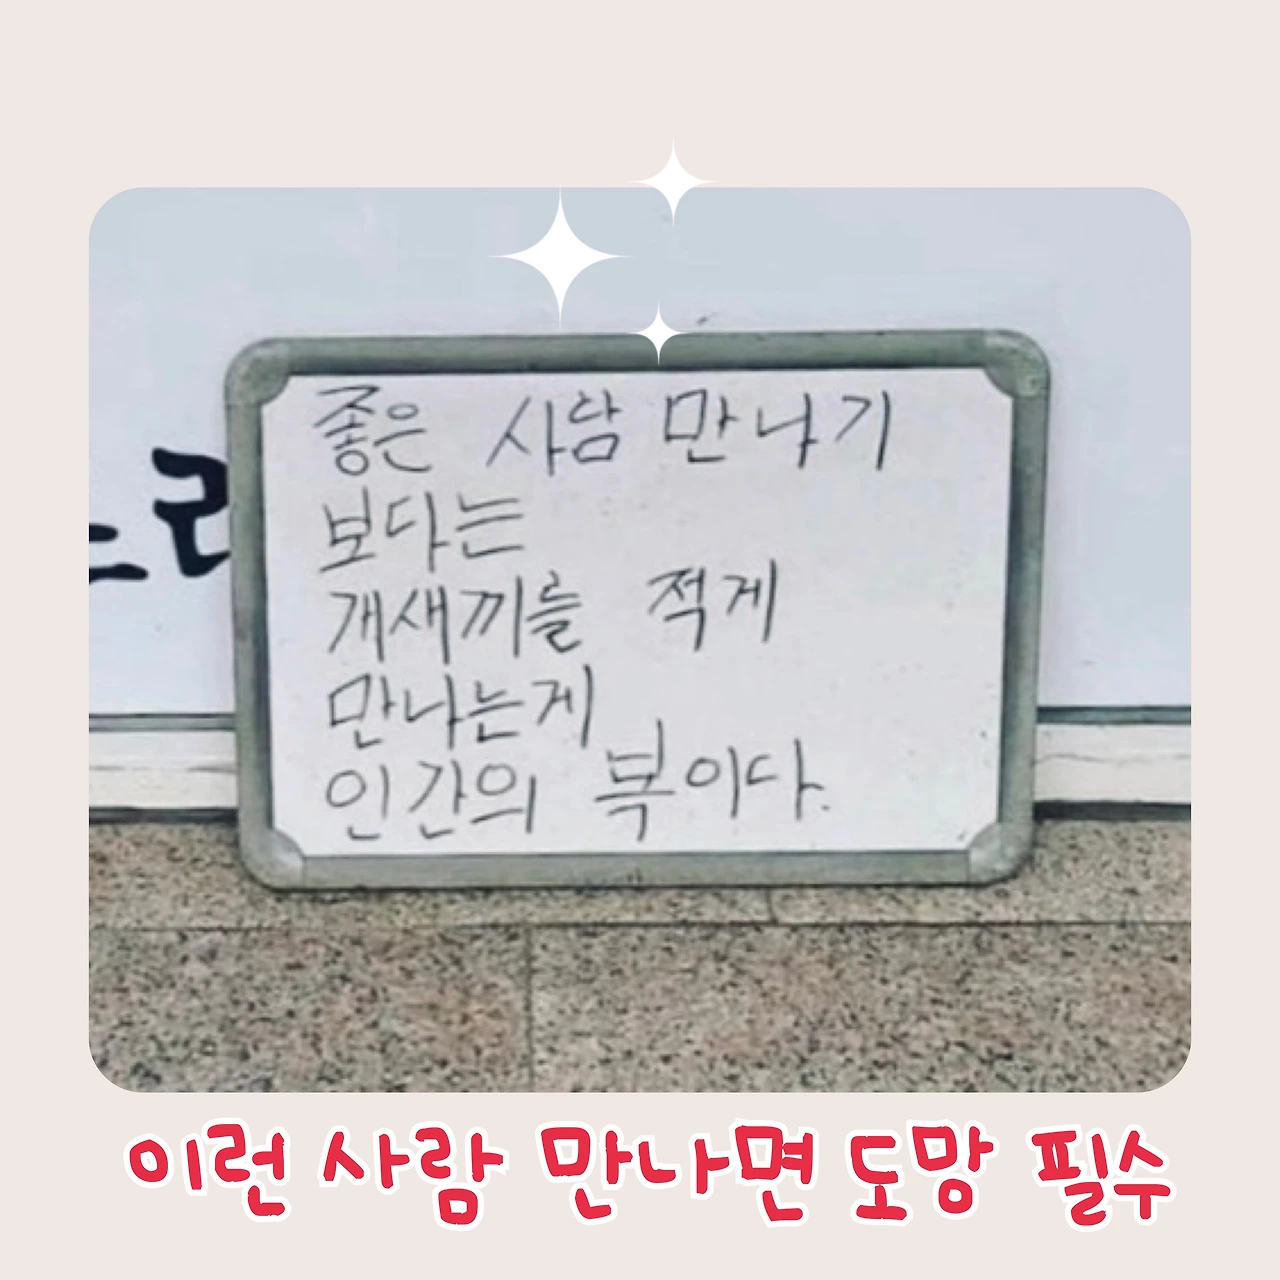 좋은 사람 만나기
보다는
개새끼를 적게
만나는게
인간의 복이다.
이런 사람 만나면 도망 필수